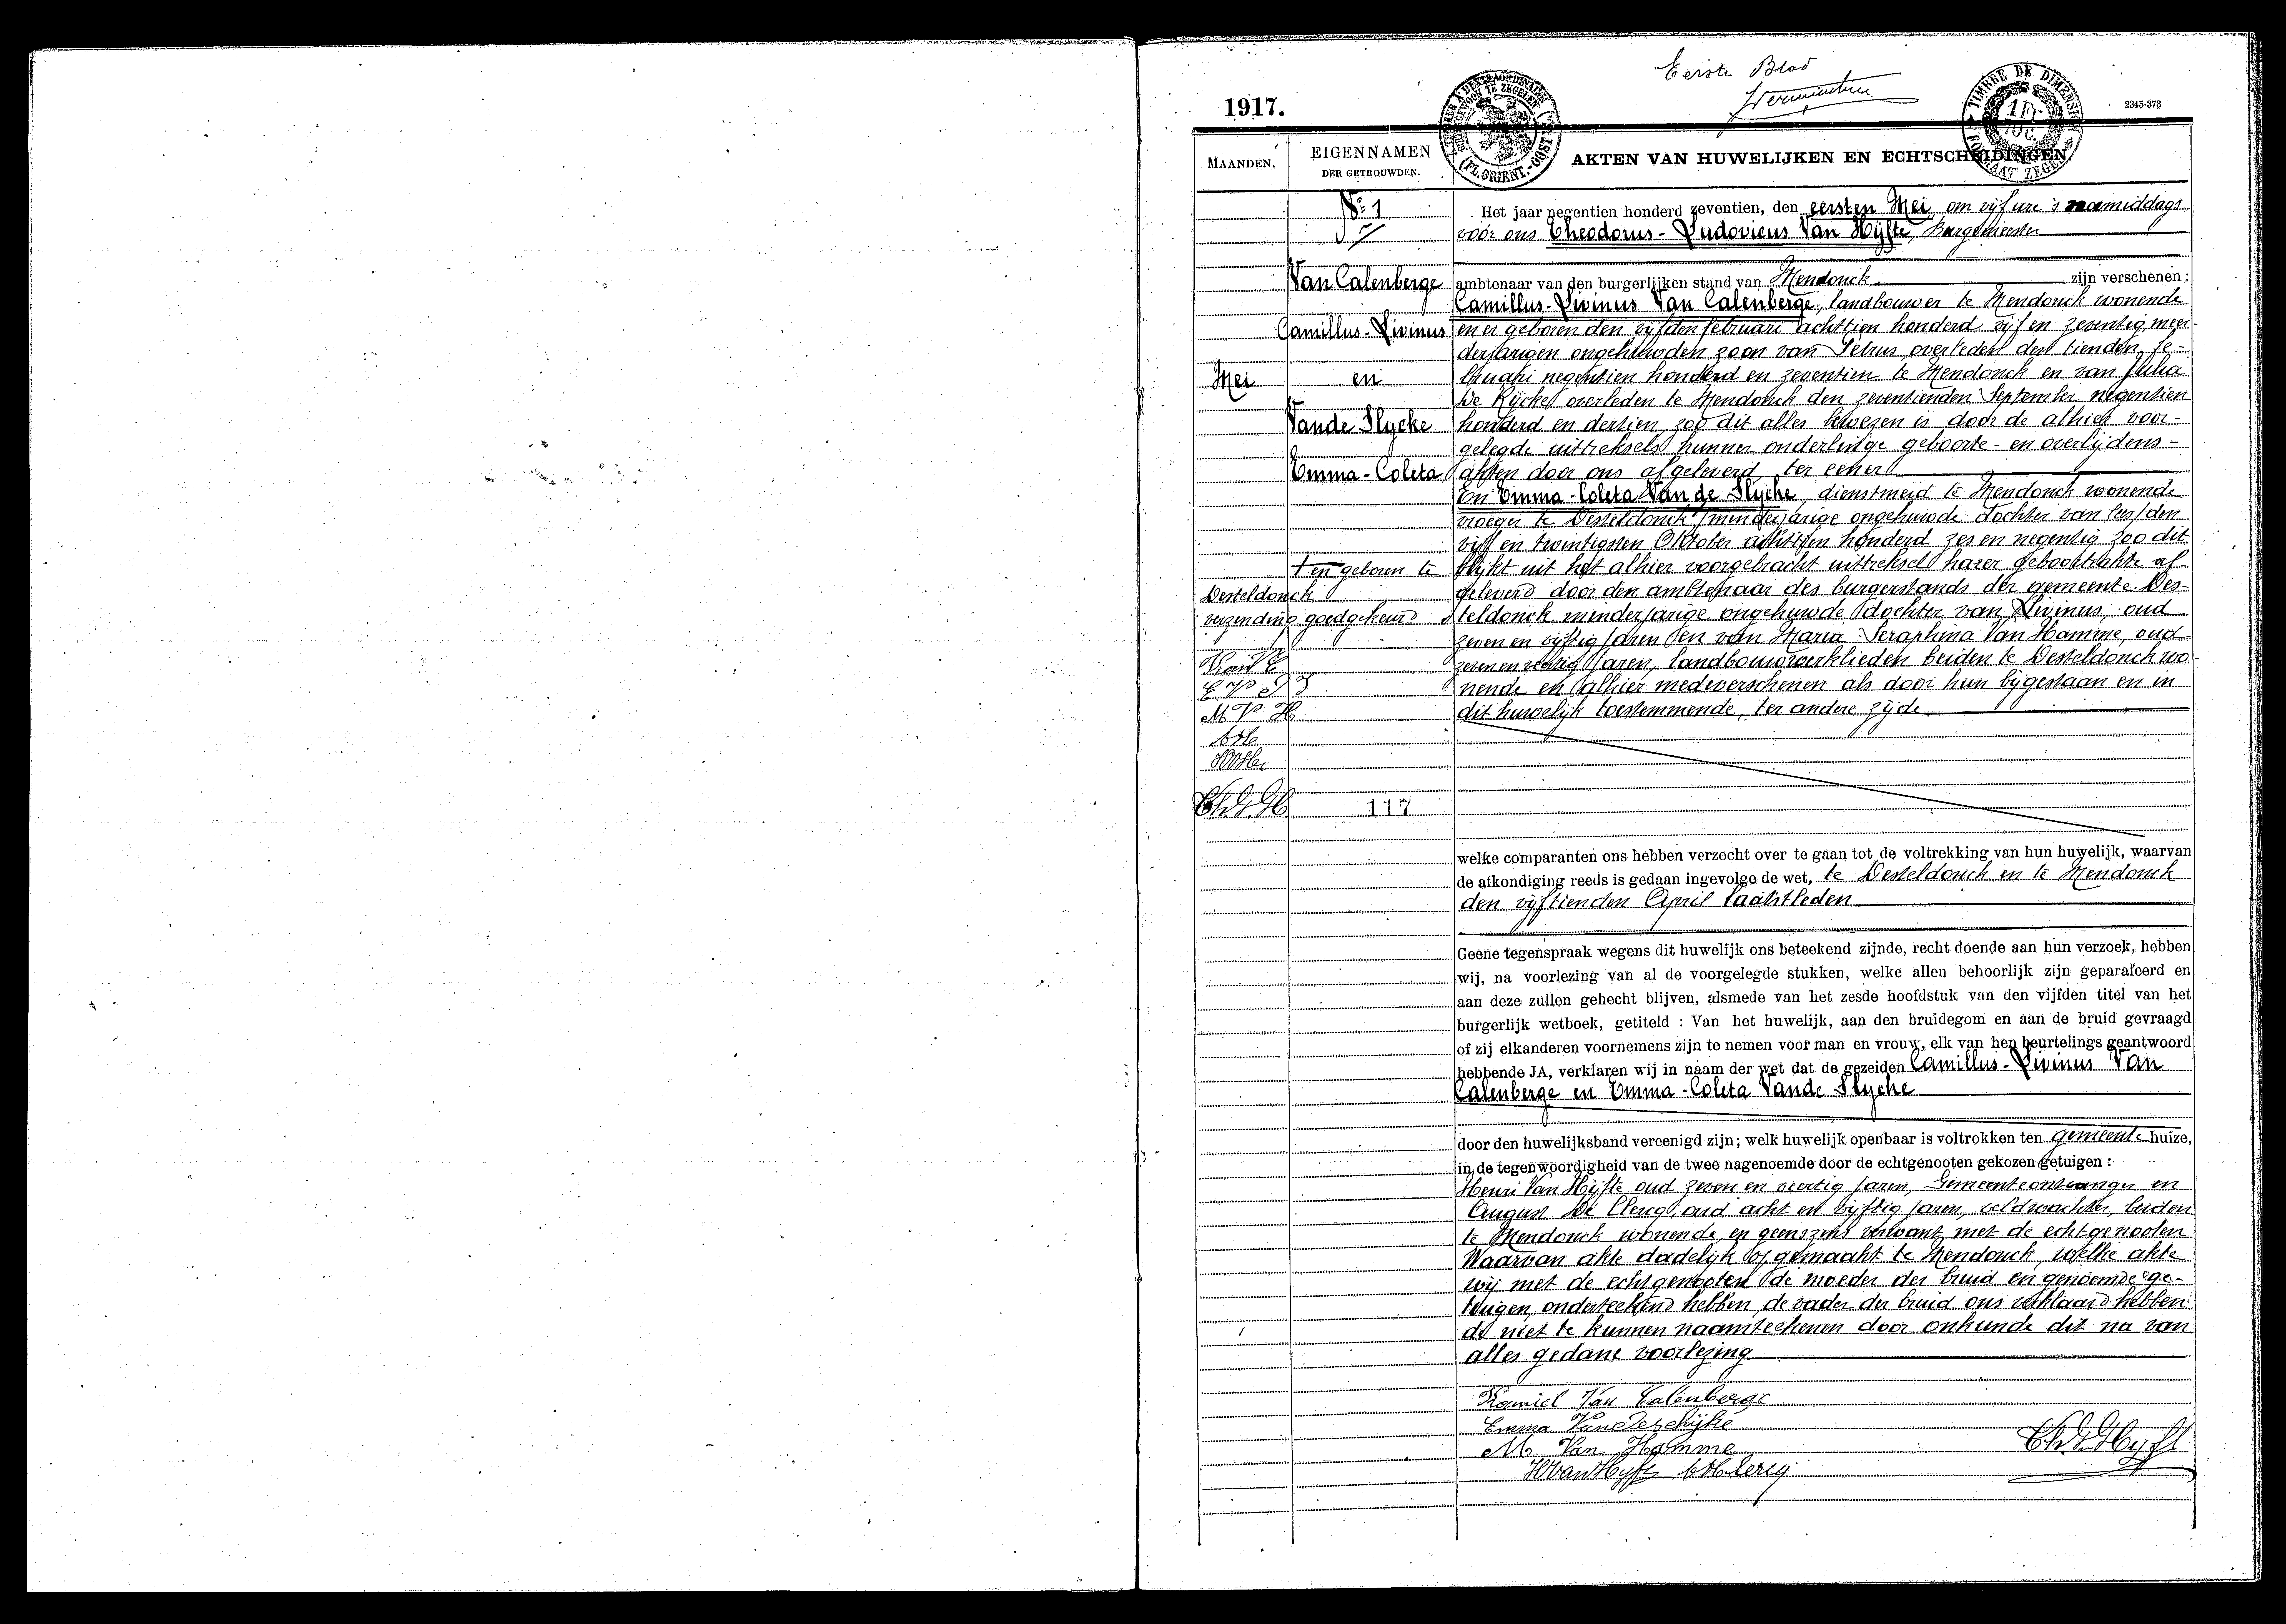 Eerste Blad
1917.
2345-373
TIMBRE DE DIMENSION
FORMAAT ZEGEL
1 FR
(FL. ORIENT.-OOST
MAANDEN.
EIGENNAMEN
DER GETROUWDEN.
AKTEN VAN HUWELIJKEN EN ECHTSCHEIDINGEN.
No 1
Van Calenberge
Camillus-Livinus
Mei
en
Van de Slycke
Emma-Coleta
+ en geboren te
Desteldonck
verzending goedgekeurd
Kan V C
E V D S
M V H
Th.V.H.
117
Het jaar negentien honderd zeventien, den eersten Mei, om vijf ure 's namiddags
voor ons Theodorus-Ludovicus Van Hijfte, Burgemeester
ambtenaar van den burgerlijken stand van Mendonck zijn verschenen:
Camillus-Livinus Van Calenberge, landbouwer te Mendonck wonende
en er geboren den vijfden februari achttien honderd vijf en zeventig, meer-
derjarigen ongehuwden zoon van Petrus overleden den tienden fe-
bruari negentien honderd en zeventien te Mendonck en van Julia
De Rijcke overleden te Mendonck den zeventienden September negentien
honderd en dertien, zoo dit alles bewezen is door de alhier voor-
gelegde uittreksels hunner onderlinge geboorte- en overlijdens-
akten door ons afgeleverd, ter eener
En Emma-Coleta Van de Slycke, dienstmeid te Mendonck wonende
vroeger te Desteldonck minderjarige ongehuwde dochter van den
vijf en twintigsten Oktober achttien honderd zes en negentig zoo dit
blijkt uit het alhier voorgebracht uittreksel harer geboorteakte af-
geleverd door den ambtenaar des burgerstands der gemeente Des-
teldonck minderjarige ongehuwde dochter van Livinus, oud
zeven en vijftig jaren en van Maria Seraphina Van Hamme, oud
zeven en veertig jaren, landbouwwerklieden beiden te Desteldonck wo-
nende en alhier medeverschenen als door hun bijgestaan en in
dit huwelijk toestemmende, ter andere zijde
welke comparanten ons hebben verzocht over te gaan tot de voltrekking van hun huwelijk, waarvan
de afkondiging reeds is gedaan ingevolge de wet, te Desteldonck en te Mendonck
den vijftienden April laatstleden
Geene tegenspraak wegens dit huwelijk ons beteekend zijnde, recht doende aan hun verzoek, hebben
wij, na voorlezing van al de voorgelegde stukken, welke allen behoorlijk zijn geparafeerd en
aan deze zullen gehecht blijven, alsmede van het zesde hoofdstuk van den vijfden titel van het
burgerlijk wetboek, getiteld : Van het huwelijk, aan den bruidegom en aan de bruid gevraagd
of zij elkanderen voornemens zijn te nemen voor man en vrouw, elk van hen beurtelings geantwoord
hebbende JA, verklaren wij in naam der wet dat de gezeiden Camillus-Livinus Van
Calenberge en Emma-Coleta Van de Slycke
door den huwelijksband vereenigd zijn; welk huwelijk openbaar is voltrokken ten gemeente huize,
in de tegenwoordigheid van de twee nagenoemde door de echtgenooten gekozen getuigen :
Henri Van Hijfte oud zeven en veertig jaren, Gemeenteontvanger en
August De Clercq, oud acht en vijftig jaren, veldwachter, beiden
te Mendonck wonende, en geenszins verwant met de echtgenooten
Waarvan akte dadelijk opgemaakt te Mendonck, welke akte
wij met de echtgenooten de moeder der bruid en genoemde ge-
tuigen, onderteekend hebben, de vader der bruid ons verklaard hebben
de niet te kunnen naamteekenen door onkunde dit na van
alles gedane voorlezing
Kamiel Van Calenberge
Emma Vanderslijke
M Van Hamme
H Van Hyfte A De Clercq
Th.V.Hyft